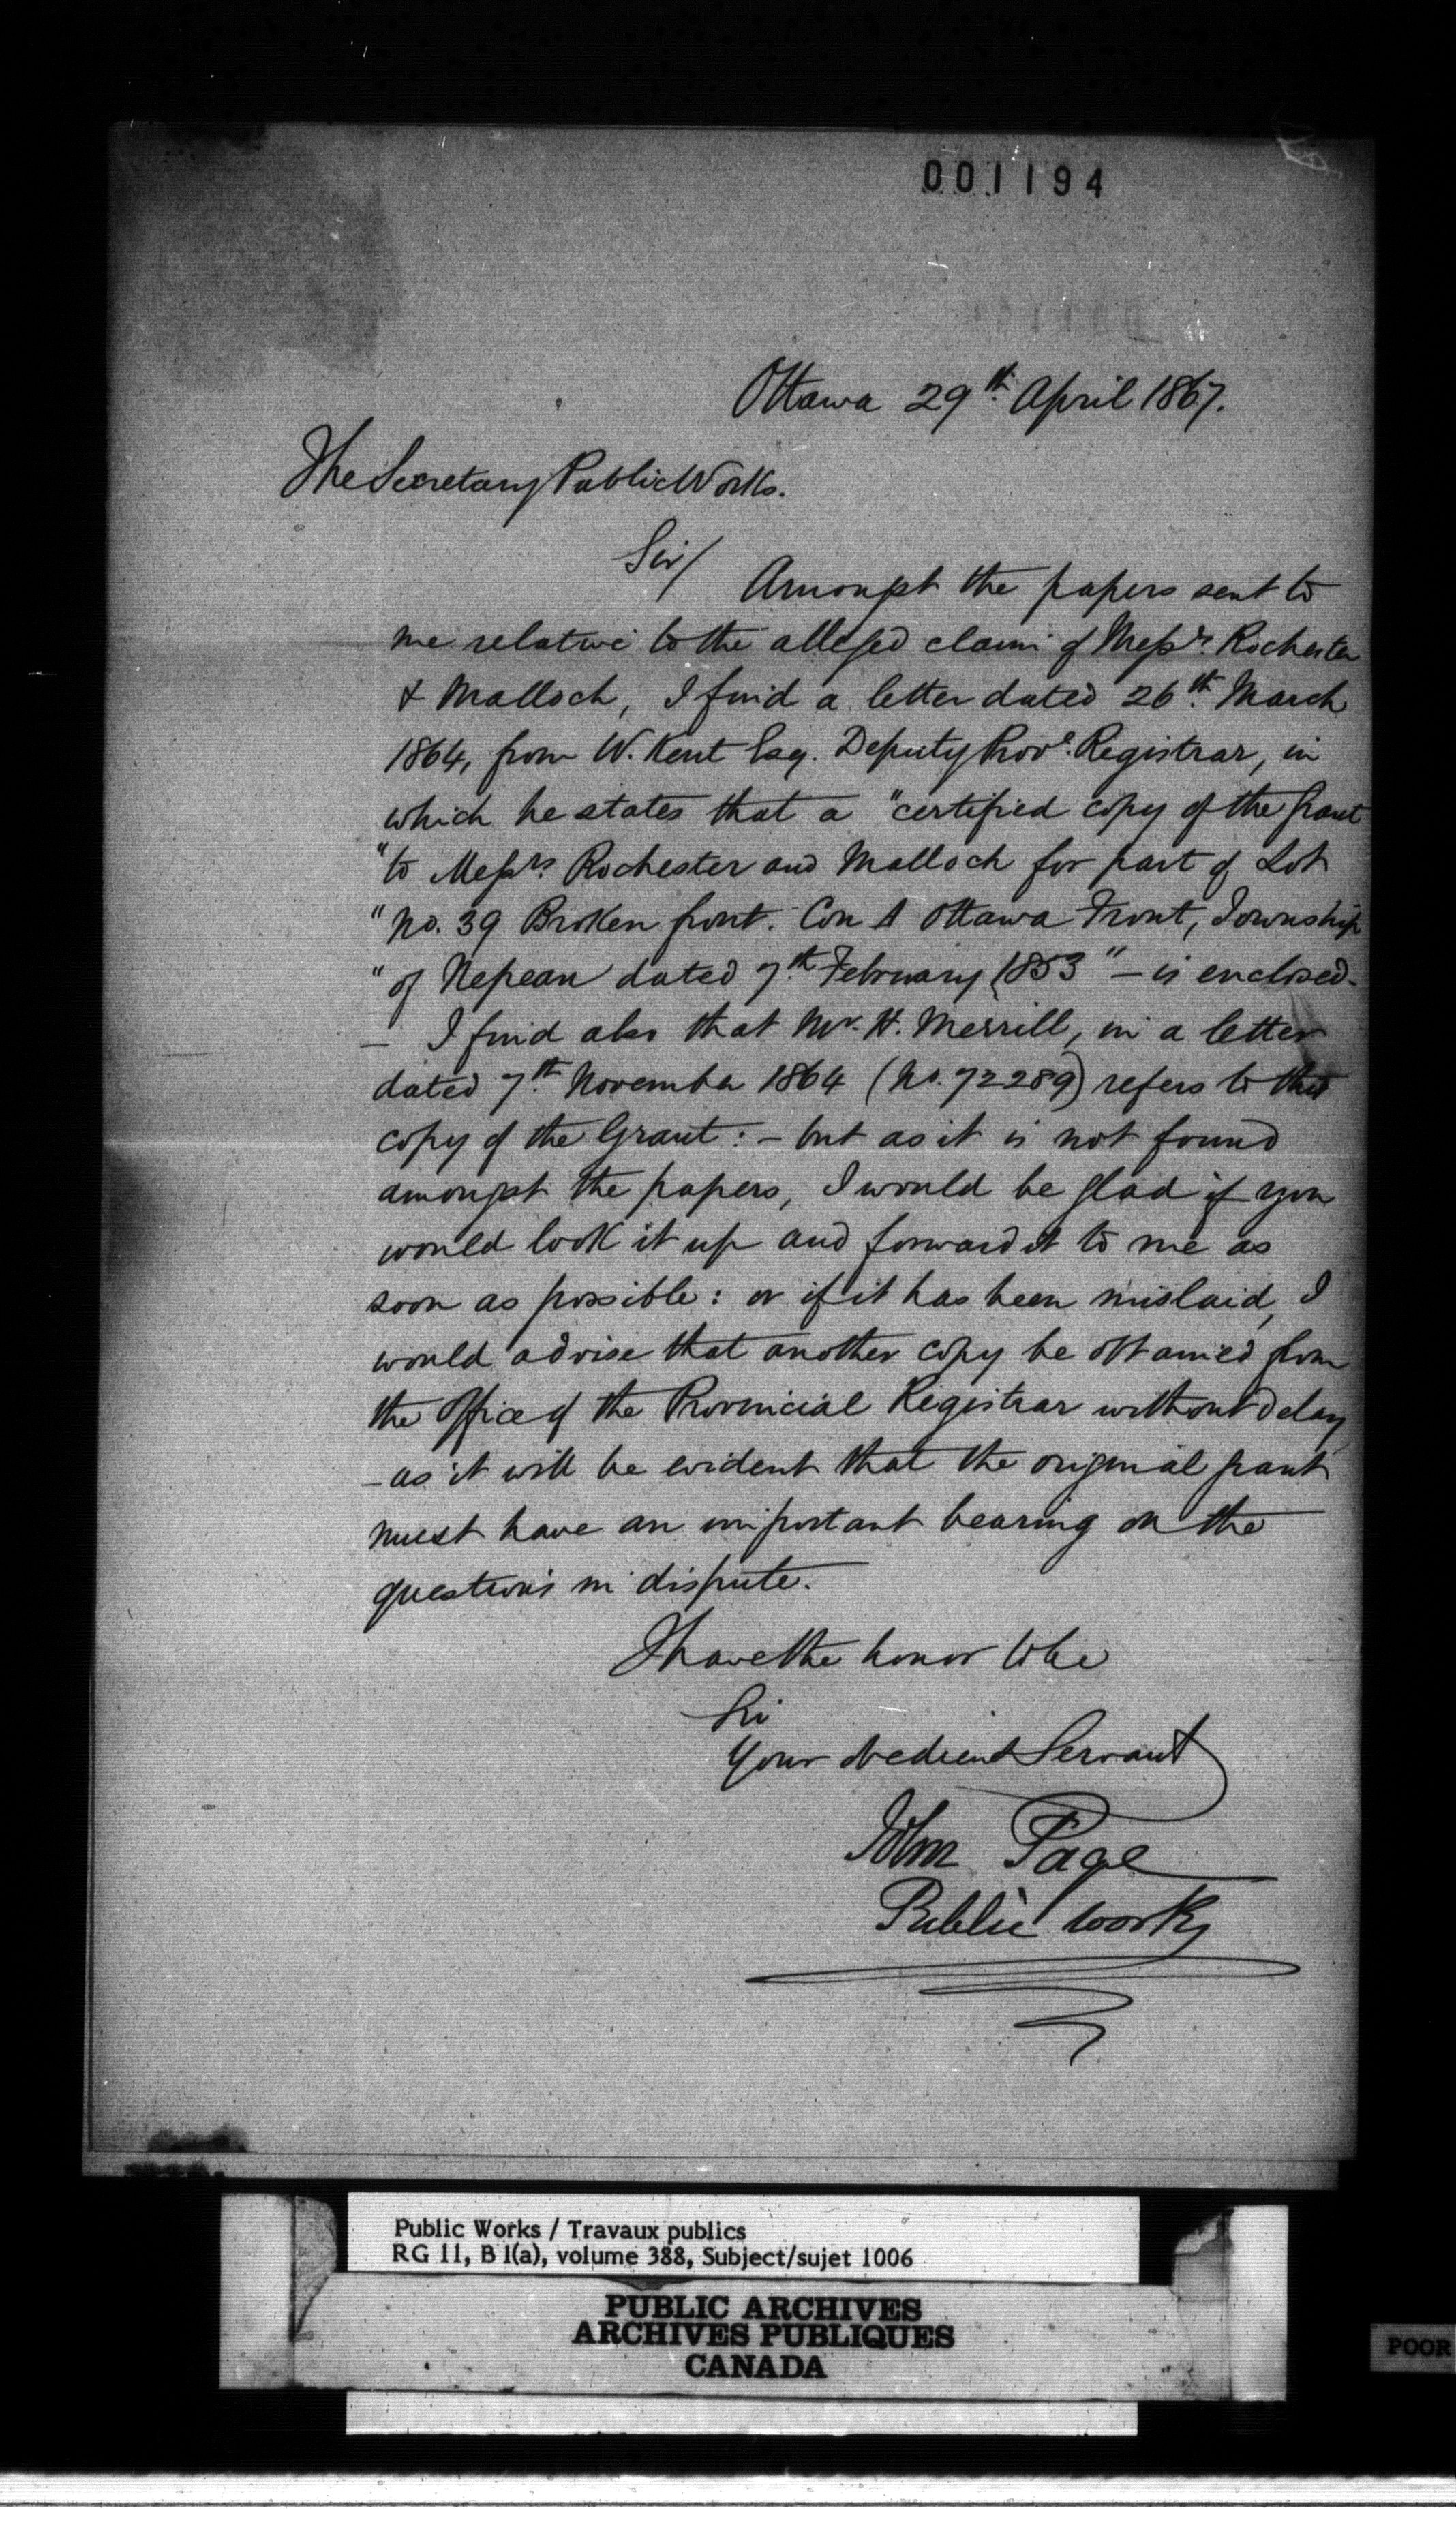 001194
Ottawa 29th. April 1867.
The Secretary Public Works.
Sir/
Amongst the papers sent to
me relative to the alleged claim of Messrs. Rochester
& Malloch, I find a letter dated 26th. March
1864, from W. Kent Esq. Deputy Provl. Registrar, in
which he states that a "certified copy of the grant
"to Messrs. Rochester and Malloch for part of Lot
"No. 39 Broken front. Con A Ottawa Front, Township
"of Nepean dated 7th. February 1853" – is enclosed.
– I find also that Mr. H. Merrill, in a letter
dated 7th. November 1864 (No. 72289) refers to this
copy of the Grant: – but as it is not found
amongst the papers, I would be glad if you
would look it up and forward it to me as
soon as possible: or if it has been mislaid, I
would advise that another copy be obtained from
the Office of the Provincial Registrar without delay
– as it will be evident that the original grant
must have an important bearing on the
questions in dispute.
I have the honor to be
Sir
Your obedient Servant
John Page
Public Works
Public Works / Travaux publics
RG 11, B 1(a), volume 388, Subject/sujet 1006
PUBLIC ARCHIVES
ARCHIVES PUBLIQUES
CANADA
POOR